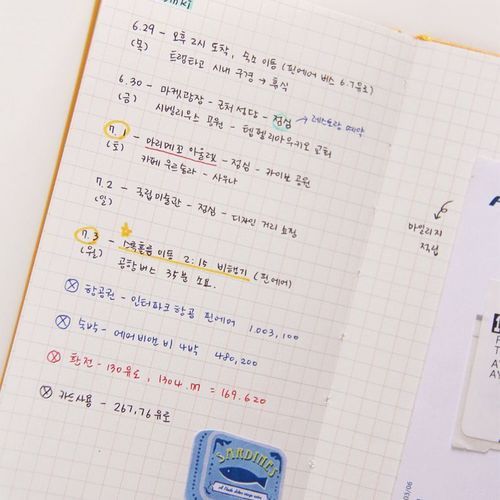 inki
6.29 - 오후 2시 도착, 숙소 이동 (핀에어 버스 6.7유로)
(목) 트램타고 시내 구경 → 휴식
6.30 - 마켓광장 - 근처 성당 - 점심 → 레스토랑 예약
(금) 시벨리우스 공원 - 템펠리아우키오 교회
7.1 - 마리메꼬 아울렛 - 점심 - 카이보 공원
(토) 카페 우르술라 - 사우나
7.2 - 국립미술관 - 점심 - 디자인 거리 쇼핑
(일)
7.3 - 스톡홀름 이동 2:15 비행기 (핀에어)
(월) 공항버스 35분 소요.
ⓧ 항공권 - 인터파크 항공 핀에어 1.003,100
ⓧ 숙박 - 에어비앤비 4박 480,200
ⓧ 환전 - 130유로, 1304.711 = 169.620
ⓧ 카드사용 - 267,76 유로
마일리지
적립
SARDINES
03/06